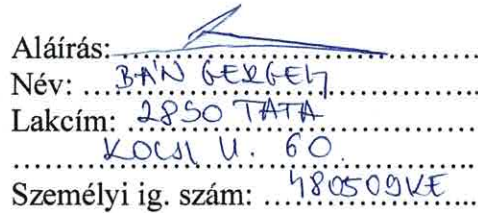 Aláírás:
Név: BÁN GERGELY
Lakcím: 2890 TATA
KOCSI U. 60.
Személyi ig. szám: 480509KE